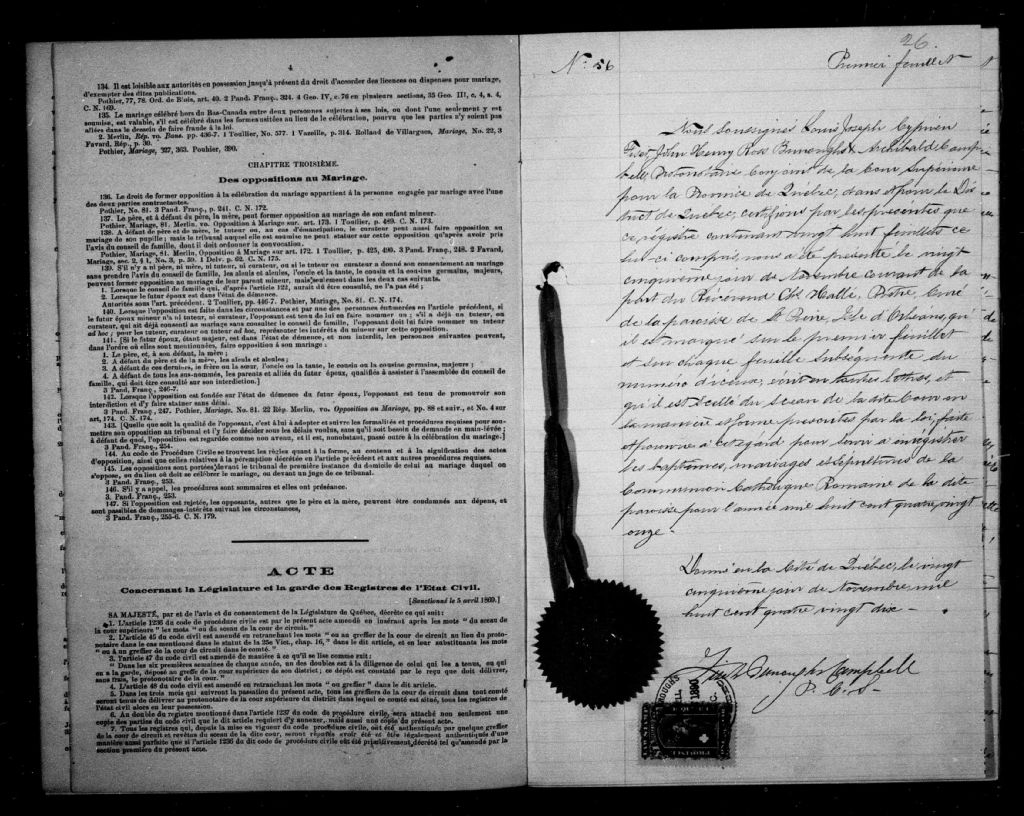 4
134. Il est loisible aux autorités en possession jusqu'à présent du droit d'accorder des licences ou dispenses pour mariage,
d'exempter des dites publications.
Pothier, 77, 78. Ord. de Blois, art. 40. 2 Pand. Franç., 324. 4 Geo. IV, c. 76 en plusieurs sections, 35 Geo. III, c. 4, s. 4,
C. N. 169.
135. Le mariage célébré hors du Bas-Canada entre deux personnes sujettes à ses lois, ou dont l'une seulement y est
soumise, est valable, s'il est célébré dans les formes usitées au lieu de la célébration, pourvu que les parties n'y soient pas
allées dans le dessein de faire fraude à la loi.
2 Merlin, Rép. vo. Bans. pp. 436-7. 1 Toullier, No. 577. 1 Vazeille, p. 314. Rolland de Villargues, Mariage, No. 22, 3
Favard. Rép., p. 30.
Pothier, Mariage, 327, 363. Pouhier, 390.
CHAPITRE TROISIÈME.
Des oppositions au Mariage.
136. Le droit de former opposition à la célébration du mariage appartient à la personne engagée par mariage avec l'une
des deux parties contractantes.
Pothier, No. 81. 3 Pand. Franç., p. 241. C. N. 172.
137. Le père, et à défaut du père, la mère, peut former opposition au mariage de son enfant mineur.
Pothier, Mariage, 81. Merlin, vo. Opposition à Mariage sur. art. 173. 1 Toullier, p. 489. C. N. 173.
138. A défaut de père et de mère, le tuteur ou, au cas d'émancipation, le curateur peut aussi faire opposition au
mariage de son pupille; mais le tribunal auquel elle est soumise ne peut statuer sur cette opposition qu'après avoir pris
l'avis du conseil de famille, dont il doit ordonner la convocation.
Pothier, Mariage, 81. Merlin, Opposition à Mariage sur art. 172. 1 Toullier, p. 425, 490. 3 Pand. Franç., 248. 2 Favard,
Mariage, sec. 2, § 1, No. 3, p. 30. 1 Delv. p. 62. C. N. 175.
139. S'il n'y a ni père, ni mère, ni tuteur, ni curateur, ou si le tuteur ou curateur a donné son consentement au mariage
sans prendre l'avis du conseil de famille, les aïeuls et aïeules, l'oncle et la tante, le cousin et la cousine germains, majeurs,
peuvent former opposition au mariage de leur parent mineur, mais seulement dans les deux cas suivants.
1. Lorsque le conseil de famille qui, d'après l'article 122, aurait dû être consulté, ne l'a pas été;
2. Lorsque le futur époux est dans l'état de démence.
Autorités sous l'art. précédent. 2 Toullier, pp. 446-7. Pothier, Mariage, No. 81. C. N. 174.
140. Lorsque l'opposition est faite dans les circonstances et par une des personnes énumérées en l'article précédent, si
le futur époux mineur n'a ni tuteur, ni curateur, l'opposant est tenu de lui en faire nommer un; s'il a déjà un tuteur, ou
curateur, qui ait déjà consenti au mariage sans consulter le conseil de famille, l'opposant doit lui faire nommer un tuteur
ad hoc; pour les tuteur, curateur ou tuteur ad hoc, représenter les intérêts du mineur sur cette opposition.
141. [Si le futur époux, étant majeur, est dans l'état de démence, et non interdit, les personnes suivantes peuvent,
dans l'ordre où elles sont mentionnées, faire opposition à son mariage:
1. Le père, et, à son défaut, la mère;
2. A défaut du père et de la mère, les aïeuls et aïeules;
3. A défaut de ces derniers, le frère ou la sœur, l'oncle ou la tante, le cousin ou la cousine germains, majeurs;
4. A défaut de tous les sus-nommés, les parents et alliés du futur époux, qualifiés à assister à l'assemblée du conseil de
famille, qui doit être consulté sur son interdiction.]
3 Pand. Franç., 246-7.
142. Lorsque l'opposition est fondée sur l'état de démence du futur époux, l'opposant est tenu de promouvoir son
interdiction et d'y faire statuer sans délai.
3 Pand. Franç., 247. Pothier, Mariage, No. 81. 22 Rép. Merlin, vo. Opposition au Mariage, pp. 88 et suiv., et No. 4 sur
art. 174. C. N. 174.
143. [Quelque soit la qualité de l'opposant, c'est à lui à adopter et suivre les formalités et procédures requises pour soumettre
son opposition au tribunal et l'y faire décider sous les délais voulus, sans qu'il soit besoin de demande en main-levée:
à défaut de quoi, l'opposition est regardée comme non avenu, et il est, nonobstant, passé outre à la célébration du mariage.]
3 Pand. Franç., 254.
144. Au code de Procédure Civile se trouvent les règles quant à la forme, au contenu et à la signification des actes
d'opposition, ainsi que celles relatives à la péremption décrétée en l'article précédent et aux autres procédures requises.
145. Les oppositions sont portées devant le tribunal de première instance du domicile de celui au mariage duquel on
s'oppose, ou du lieu où doit se célébrer le mariage, ou devant un juge de ce tribunal.
3 Pand. Franç., 253.
146. S'il y a appel, les procédures sont sommaires et elles ont préséance.
3. Pand. Franç., 253.
147. Si l'opposition est rejetée, les opposants, autres que le père et la mère, peuvent être condamnés aux dépens, et
sont passibles de dommages-intérêts suivant les circonstances,
3 Pand. Franç., 255-6. C. N. 179.
ACTE
Concernant la Législature et la garde des Registres de l'Etat Civil.
[Sanctionné le 5 avril 1869.]
SA MAJESTÉ, par et de l'avis et du consentement de la Législature de Québec, décrète ce qui suit:
1. L'article 1236 du code de procédure civile est par le présent acte amendé en insérant après les mots "du sceau de
la cour supérieure" les mots "ou du sceau de la cour de circuit."
2. L'article 45 du code civil est amendé en retranchant les mots "ou au greffier de la cour de circuit au lieu du protonotaire
dans le cas mentionné dans le statut de la 25e Vict., chap. 16," dans le dit article, et en leur substituant les mots
"ou à un greffier de la cour de circuit dans le comté."
3. L'article 47 du code civil est amendé de manière à ce qu'il se lise comme suit:
"Dans les six premières semaines de chaque année, un des doubles est à la diligence de celui qui les a tenus, ou qui
en a la garde, déposé au greffe de la cour supérieure de son district; ce dépôt est constaté par le reçu que doit délivrer,
sans frais, le protonotaire de la cour."
4. L'article 48 du code civil est amendé en retranchant les mots "ou greffier" dans le dit article.
5. Dans les trois mois qui suivront la passation du présent acte, tous les greffiers de la cour de circuit dans tout comté
seront tenus de délivrer au protonotaire de la cour supérieure du district dans lequel ce comté est situé, tous les registres de
l'état civil alors en leur possession.
6. Au double du registre mentionné dans l'article 1237 du code de procédure civile, sera attaché non seulement une
copie des parties du code civil que le dit article requiert d'y annexer, mais aussi une copie du présent acte.
7. Tous les registres qui, depuis la mise en vigueur du code procédure civile, ont été authentiqués par quelque greffier
de la cour de circuit et revêtus du sceau de la dite cour, seront réputés avoir été et être légalement authentiqués d'une
manière aussi parfaite que si l'article 1236 du dit code de procédure civile eût été primitivement décrété tel qu'amendé par la
section première du présent acte.
26.
No 56
Premier feuillet
Nous Soussignés Louis Joseph Cyprien
Fiset, John Henry Ross Burroughs & Archibald Campbell,
Protonotaire Conjoint de la Cour Supérieure
pour la Province de Québec, dans et pour le District
de Québec, certifions par les présentes que
ce registre contenant vingt huit feuillets ce
lui-ci compris, nous a été présenté le vingt
cinquième jour de Novembre courant de la
part du Révérend Chs Hallé, Prêtre, Curé
de la paroisse de St Pierre, Isle d'Orléans, qu'
il est marqué sur le premier feuillet
et sur chaque feuille subséquente du
numéro d'iceux, écrit en toutes lettres, et
qu'il est scellé du sceau de la dite Cour en
la manière et forme prescrites par la loi, faite
et pourvue à cet égard pour tenir à enregistrer
les baptêmes, mariages et sépultures de la
Communion Catholique Romaine de la dite
paroisse pour l'année mil huit cent quatre vingt
onze.
Donné en la Cité de Québec, le vingt
cinquième jour de Novembre mil
huit cent quatre vingt dix —
Fiset Burroughs Campbell
P. C. S.
1890